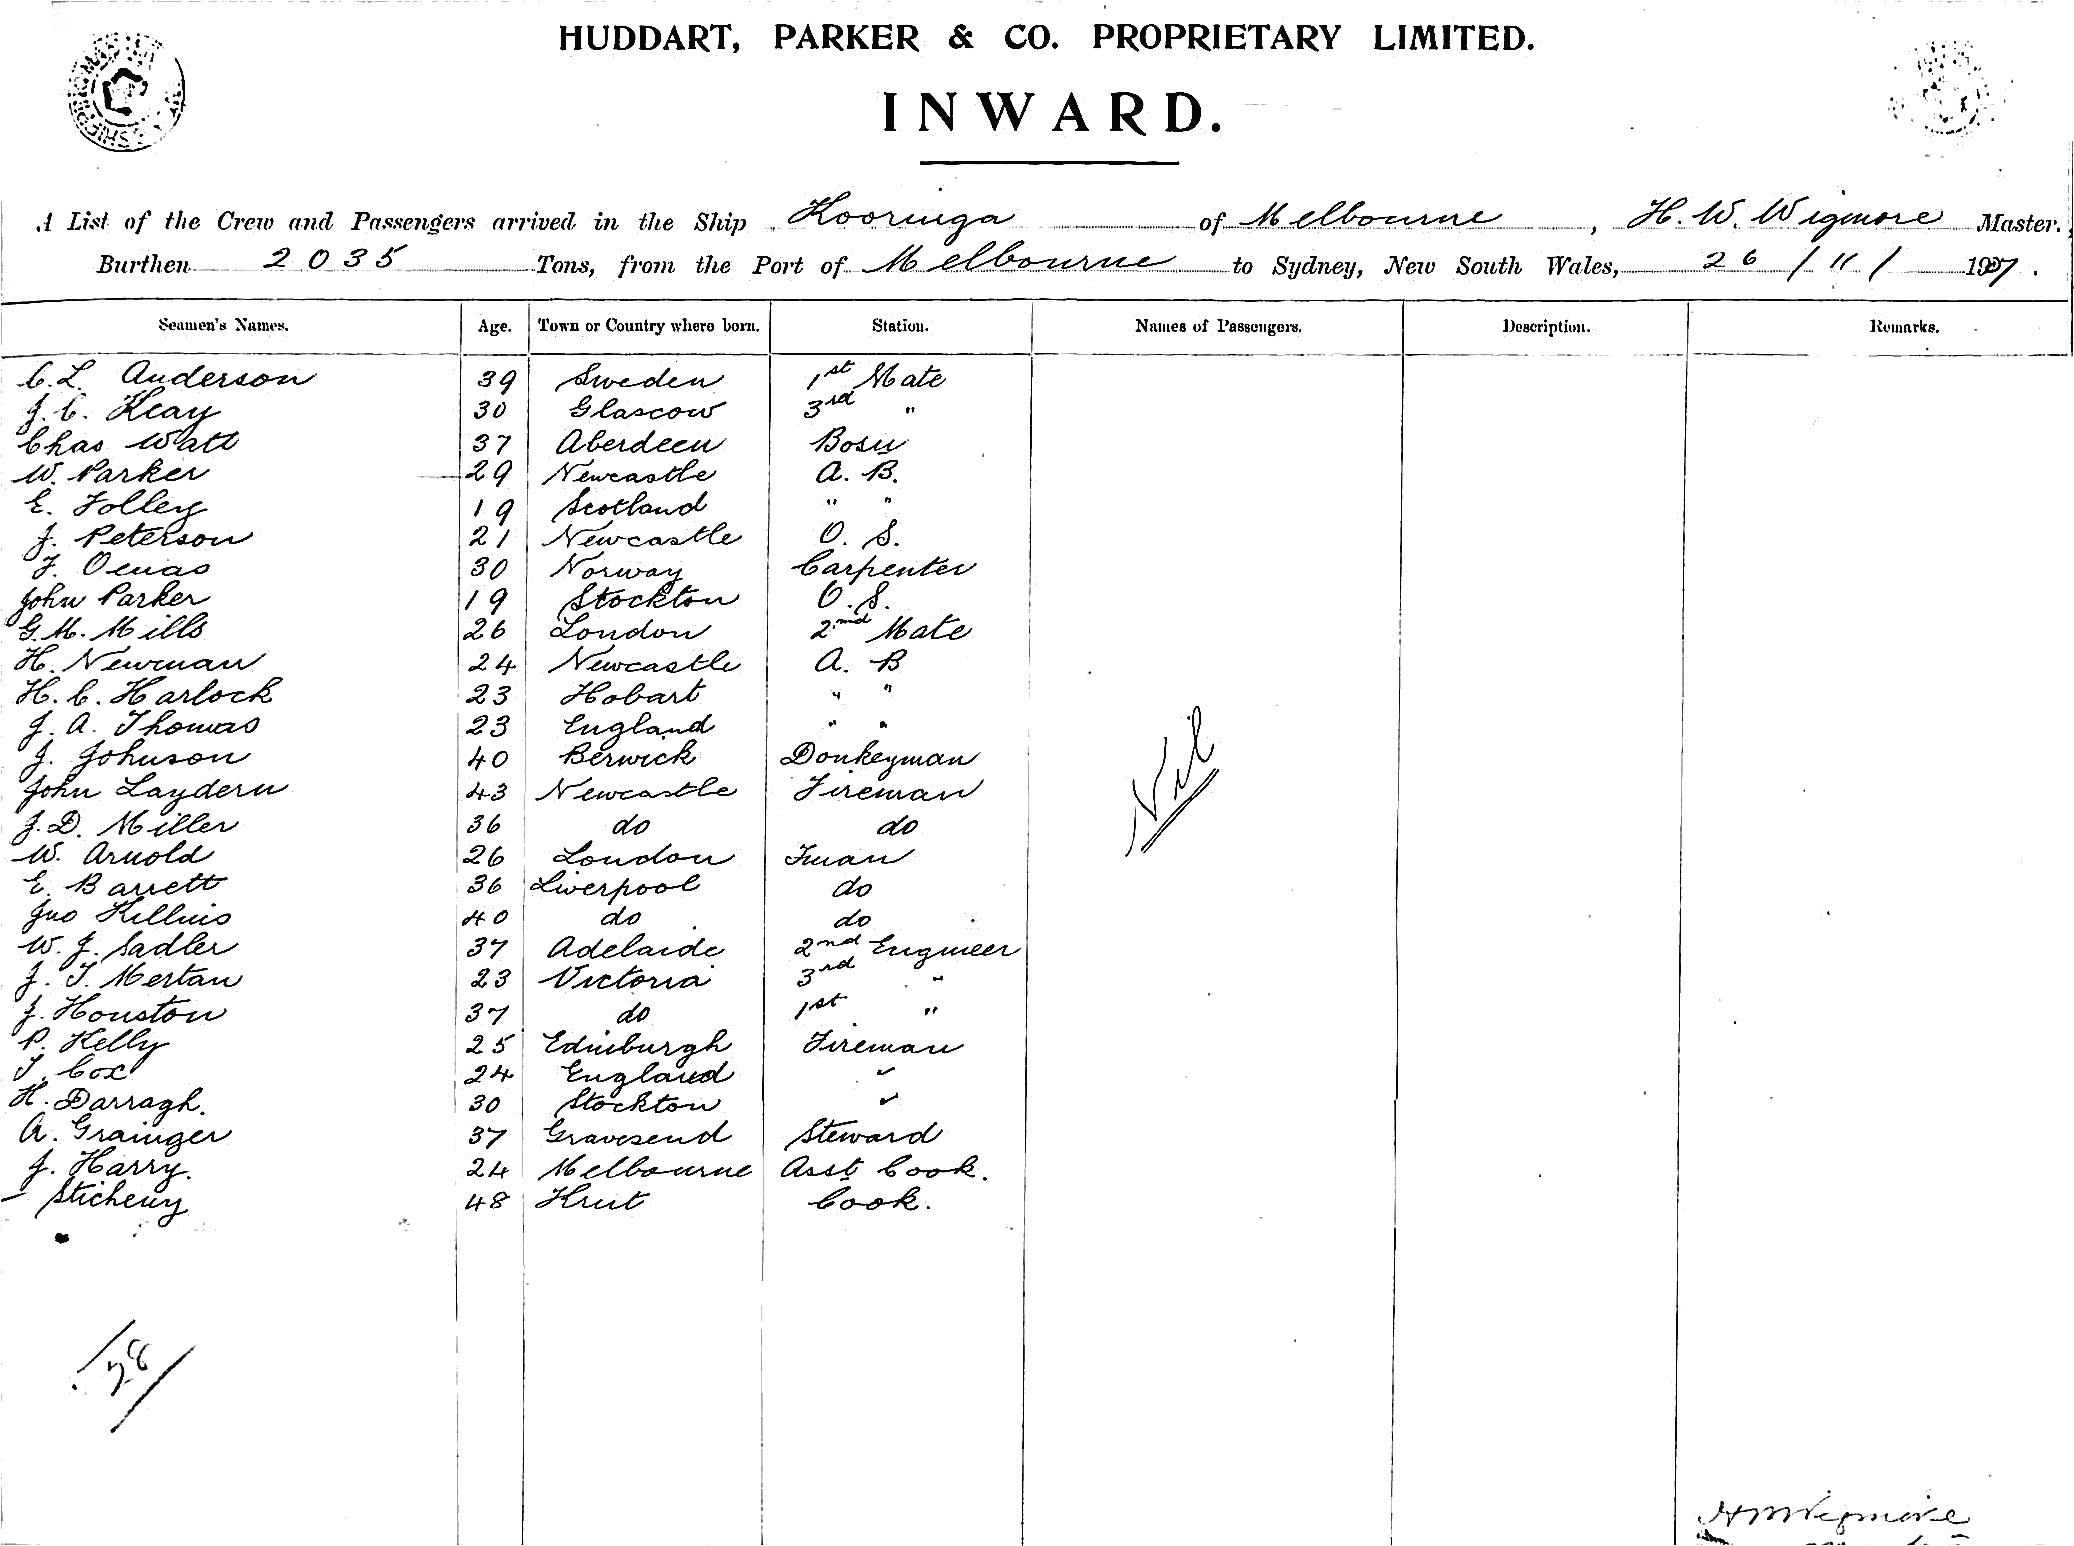 HUDDART, PARKER & CO. PROPRIETARY LIMITED.
INWARD.
A List of the Crew and Passengers arrived in the Ship Kooringa of Melbourne, H. W. Wigmore Master.
Burthen 2035 Tons, from the Port of Melbourne to Sydney, New South Wales, 26 / 11 / 1907.
Seamen's Names. Age. Town or Country where born. Station. Names of Passengers. Description. Remarks.
C. L. Anderson 39 Sweden 1st Mate
J. C. Keay 30 Glascow 3rd "
Chas Watt 37 Aberdeen Bosn
W. Parker 29 Newcastle A. B.
E. Folley 19 Scotland " "
J. Peterson 21 Newcastle O. S.
F. 30 Norway Carpenter
John Parker 19 Stockton O. S.
G. M. Mills 26 London 2nd Mate
H. Newman 24 Newcastle A. B
H. C. Harlock 23 Hobart " "
J. A. Thomas 23 England " "
J. Johnson 40 Berwick Donkeyman
John Laydern 43 Newcastle Fireman
J. D. Miller 36 do do
W. Arnold 26 London Fman
E. Barrett 36 Liverpool do
Jno Killins 40 do do
W. J. Sadler 37 Adelaide 2nd Engineer
J. T. Mertan 23 Victoria 3rd "
J. Houston 37 do 1st "
P. Kelly 25 Edinburgh Fireman
T. Cox 24 England "
H. Darragh. 30 Stockton "
A. Grainger 37 Gravesend Steward
J. Harry. 24 Melbourne Asst Cook.
– Sticheny 48 Cook.
Nil
28
H W Wigmore